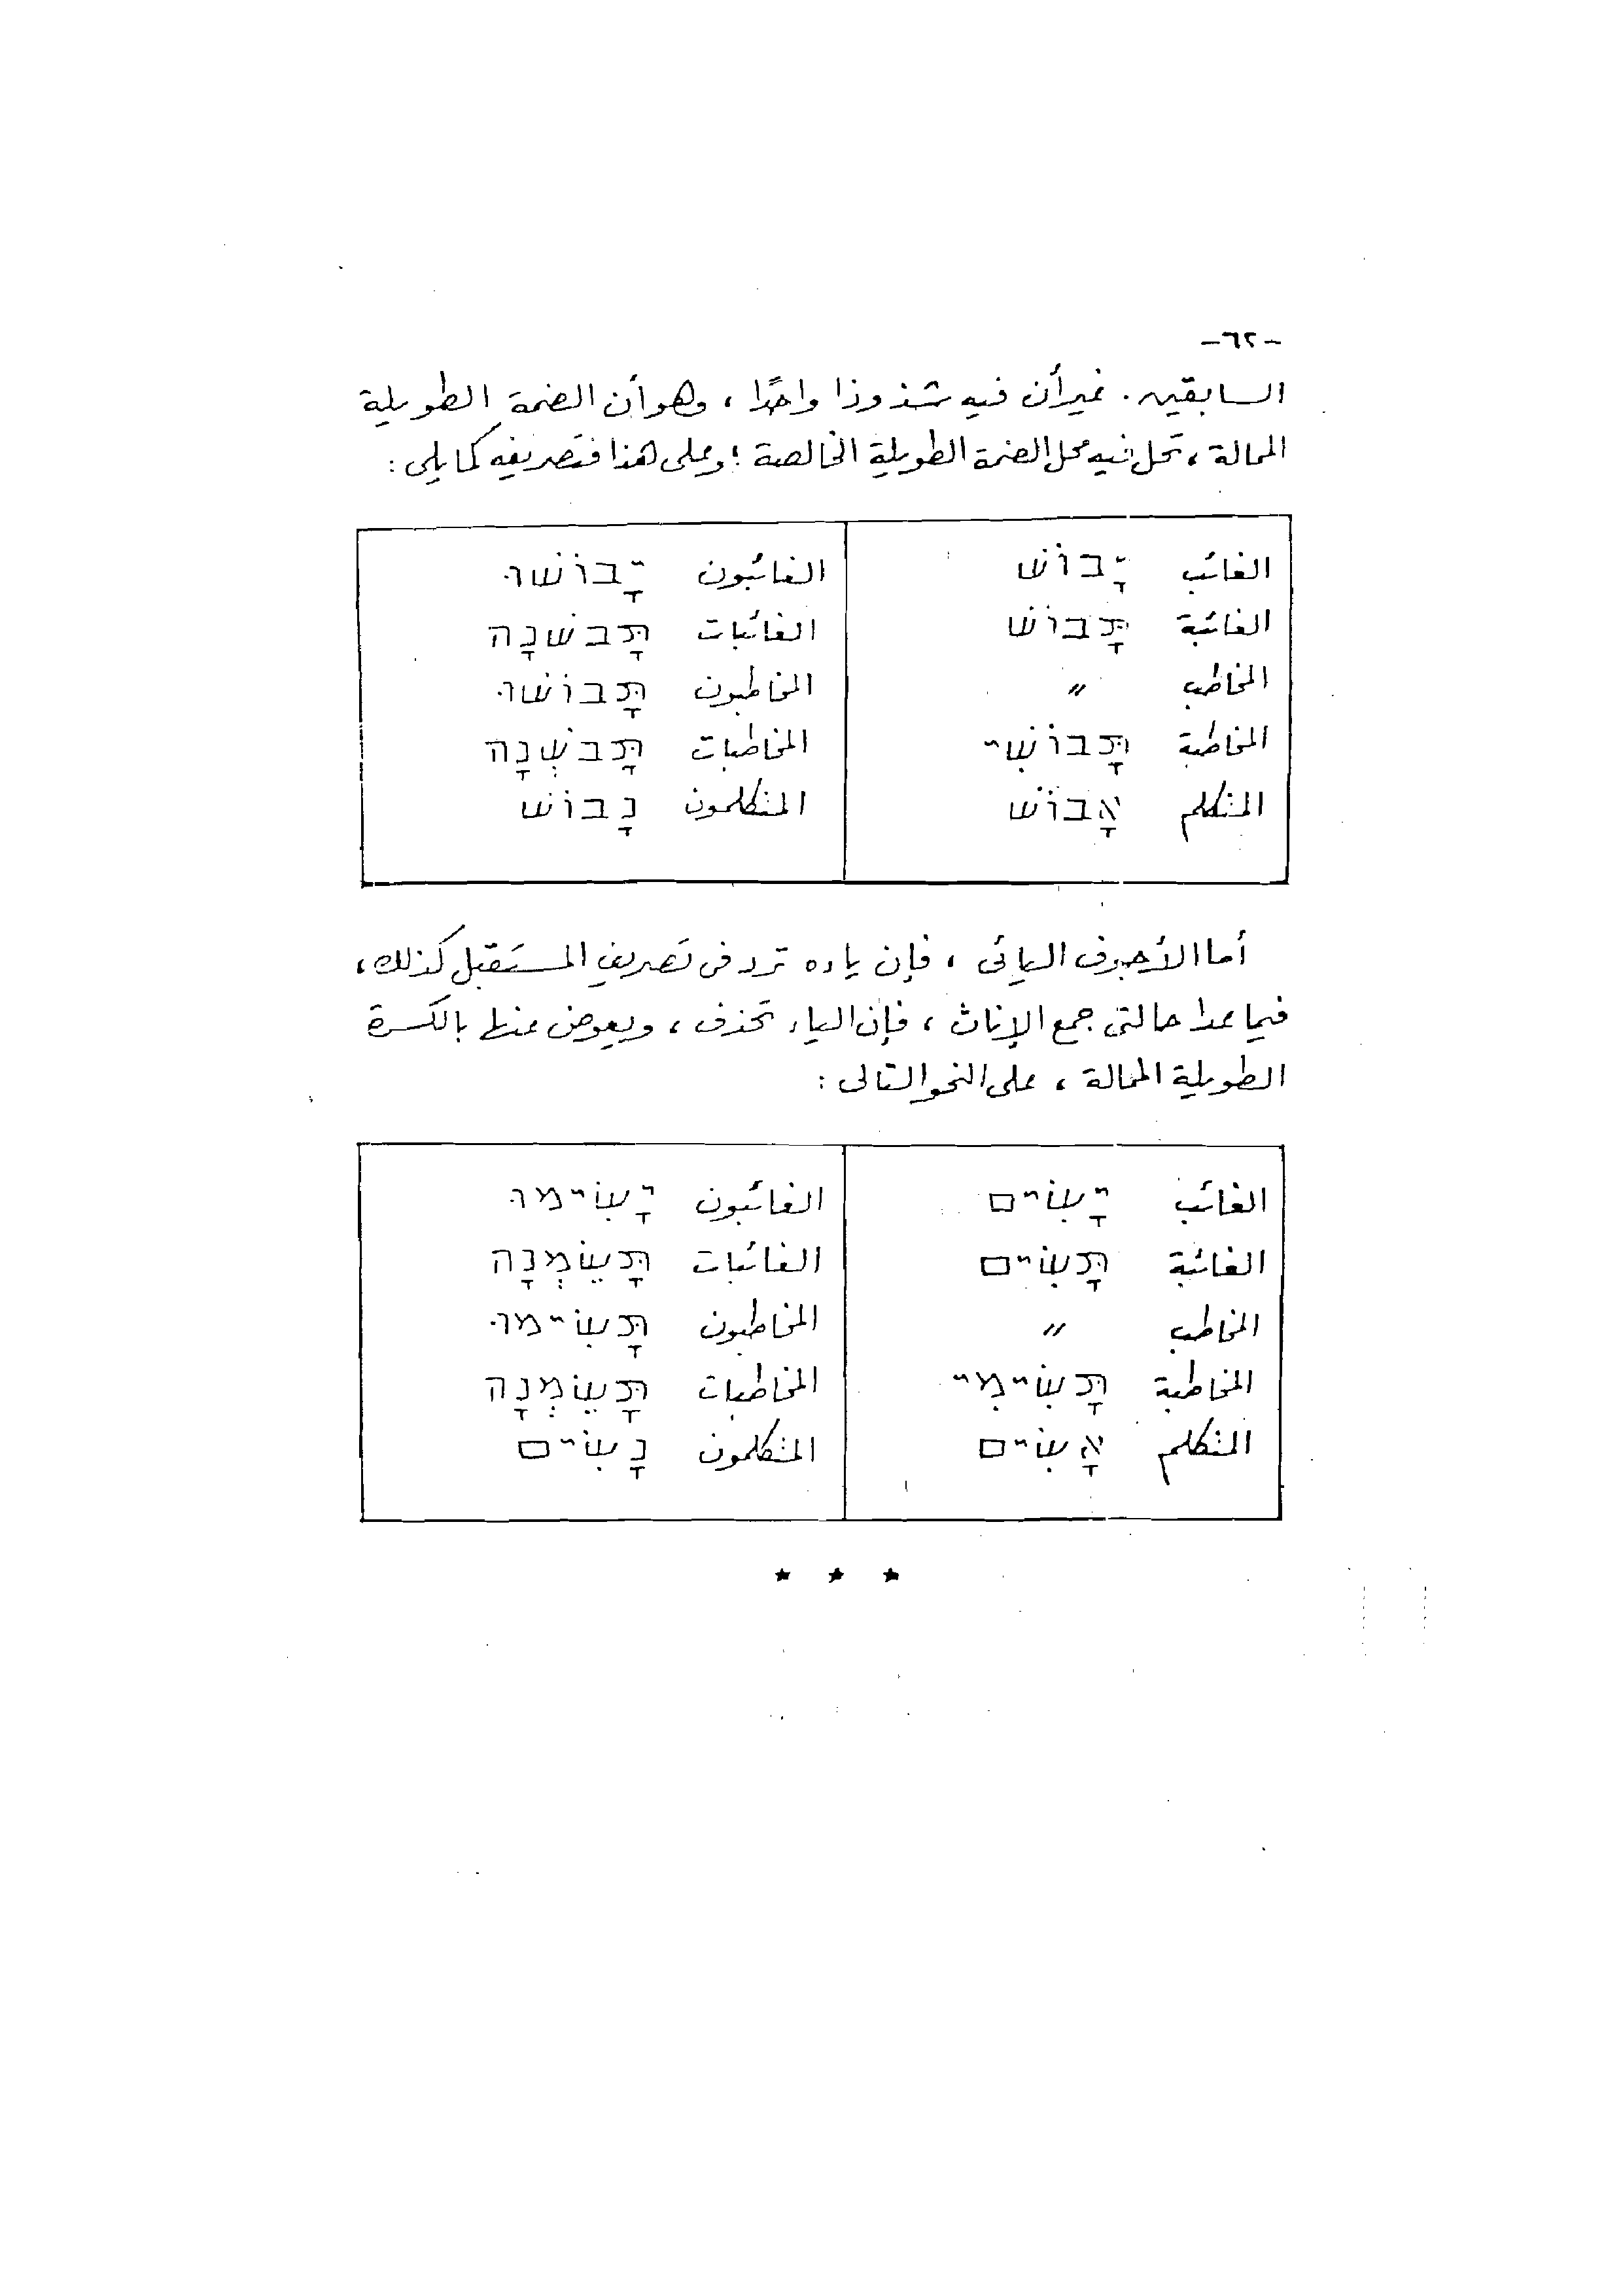 -٦٢-
السابقين. غير أن فيه شذوذا واحدًا ، وهو أن الضمة الطويلة
الممالة ، تحل فيه محل الضمة الطويلة الخالصة ؛ وعلى هذا فتصريفه كما يلى :
الغائب יָבוֹשׁ الغائبون יָבוֹשׁוּ
الغائبة תָּבוֹשׁ الغائبات תָּבשׁנָה
المخاطب " المخاطبون תָּבוֹשׁוּ
المخاطبة תָּבוֹשִׁי المخاطبات תָּבשְׁנָה
المتكلم אָבוֹשׁ المتكلمون נָבוֹשׁ
أما الأجوف اليائى ، فإن ياءه ترد فى تصريف المستقبل كذلك ،
فيما عدا حالتى جمع الإناث ، فإن الياء تحذف ، ويعوض عنها بالكسرة
الطويلة الممالة ، على النحو التالى :
الغائب יָשִׂים الغائبون יָשִׂימוּ
الغائبة תָּשִׂים الغائبات תָּשֵׂמְנָה
المخاطب " المخاطبون תָּשִׂימוּ
المخاطبة תָּשִׂימִי المخاطبات תָּשֵׂמְנָה
المتكلم אָשִׂים المتكلمون נָשִׂים
* * *